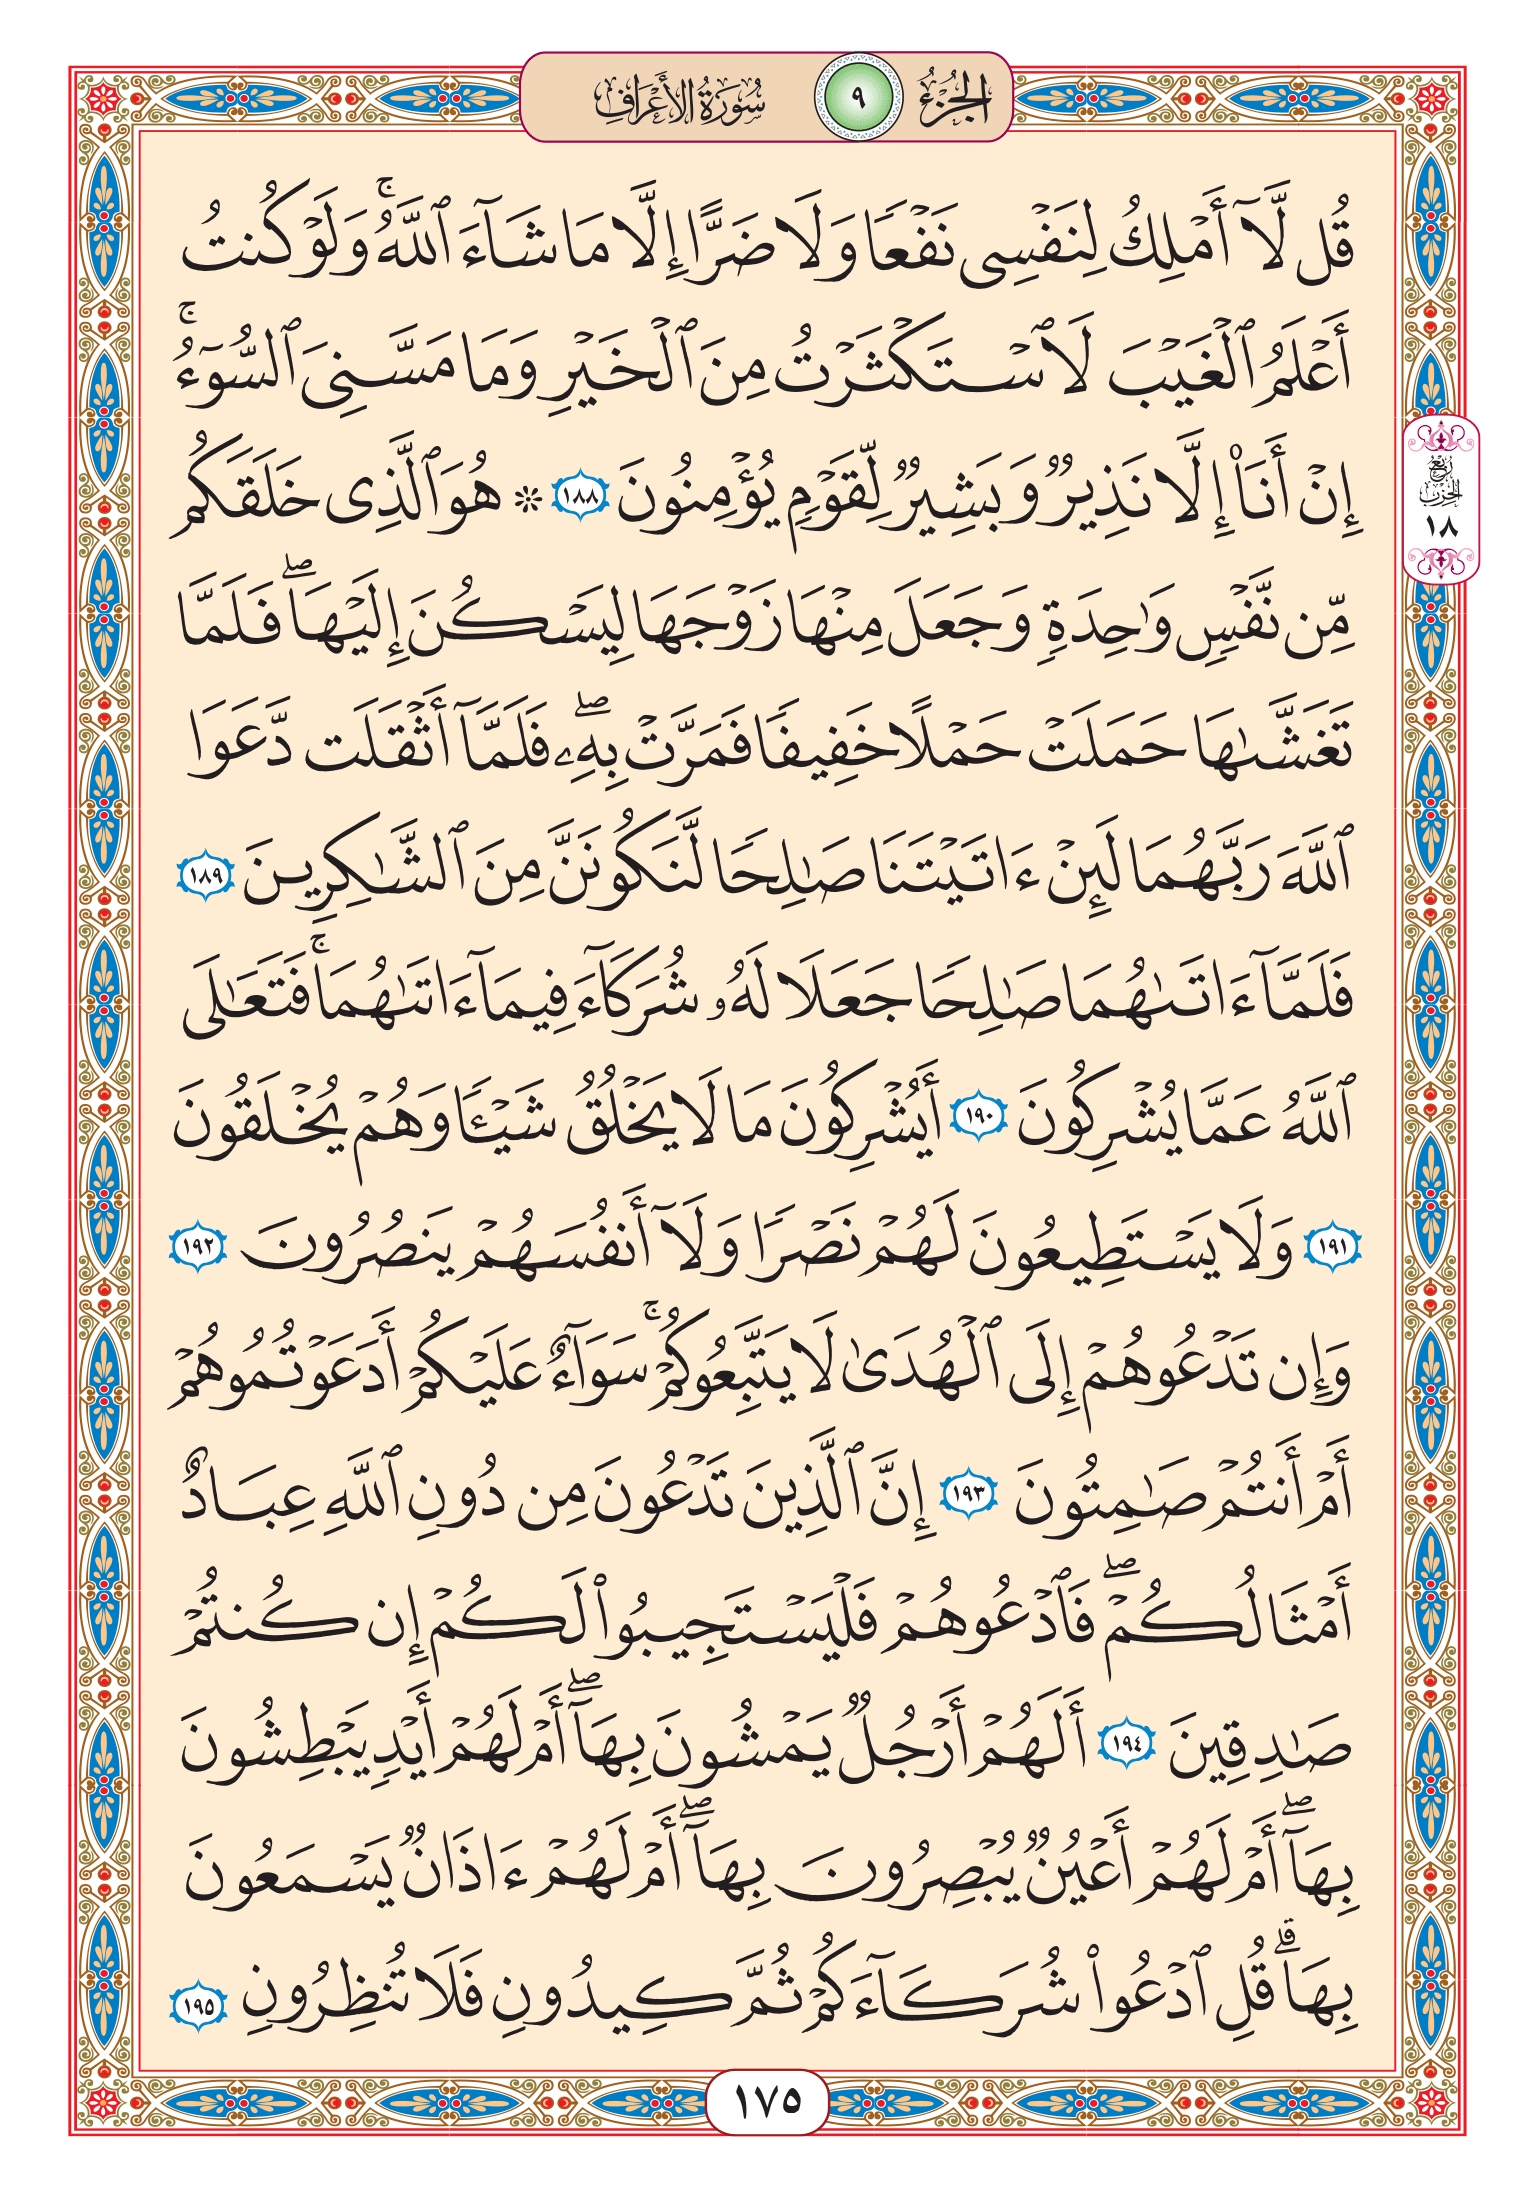 الجزء ٩ سورة الأعراف
قُل لَّآ أَمْلِكُ لِنَفْسِى نَفْعًا وَلَا ضَرًّا إِلَّا مَا شَآءَ ٱللَّهُ ۚ وَلَوْ كُنتُ
أَعْلَمُ ٱلْغَيْبَ لَٱسْتَكْثَرْتُ مِنَ ٱلْخَيْرِ وَمَا مَسَّنِىَ ٱلسُّوٓءُ ۚ
إِنْ أَنَا۠ إِلَّا نَذِيرٌ وَبَشِيرٌ لِّقَوْمٍ يُؤْمِنُونَ ١٨٨ ۞ هُوَ ٱلَّذِى خَلَقَكُم
ربع الحزب ١٨
مِّن نَّفْسٍ وَٰحِدَةٍ وَجَعَلَ مِنْهَا زَوْجَهَا لِيَسْكُنَ إِلَيْهَا ۖ فَلَمَّا
تَغَشَّىٰهَا حَمَلَتْ حَمْلًا خَفِيفًا فَمَرَّتْ بِهِۦ ۖ فَلَمَّآ أَثْقَلَت دَّعَوَا
ٱللَّهَ رَبَّهُمَا لَئِنْ ءَاتَيْتَنَا صَٰلِحًا لَّنَكُونَنَّ مِنَ ٱلشَّٰكِرِينَ ١٨٩
فَلَمَّآ ءَاتَىٰهُمَا صَٰلِحًا جَعَلَا لَهُۥ شُرَكَآءَ فِيمَآ ءَاتَىٰهُمَا ۚ فَتَعَٰلَى
ٱللَّهُ عَمَّا يُشْرِكُونَ ١٩٠ أَيُشْرِكُونَ مَا لَا يَخْلُقُ شَيْـًٔا وَهُمْ يُخْلَقُونَ
١٩١ وَلَا يَسْتَطِيعُونَ لَهُمْ نَصْرًا وَلَآ أَنفُسَهُمْ يَنصُرُونَ ١٩٢
وَإِن تَدْعُوهُمْ إِلَى ٱلْهُدَىٰ لَا يَتَّبِعُوكُمْ ۚ سَوَآءٌ عَلَيْكُمْ أَدَعَوْتُمُوهُمْ
أَمْ أَنتُمْ صَٰمِتُونَ ١٩٣ إِنَّ ٱلَّذِينَ تَدْعُونَ مِن دُونِ ٱللَّهِ عِبَادٌ
أَمْثَالُكُمْ ۖ فَٱدْعُوهُمْ فَلْيَسْتَجِيبُوا۟ لَكُمْ إِن كُنتُمْ
صَٰدِقِينَ ١٩٤ أَلَهُمْ أَرْجُلٌ يَمْشُونَ بِهَآ ۖ أَمْ لَهُمْ أَيْدٍ يَبْطِشُونَ
بِهَآ ۖ أَمْ لَهُمْ أَعْيُنٌ يُبْصِرُونَ بِهَآ ۖ أَمْ لَهُمْ ءَاذَانٌ يَسْمَعُونَ
بِهَا ۗ قُلِ ٱدْعُوا۟ شُرَكَآءَكُمْ ثُمَّ كِيدُونِ فَلَا تُنظِرُونِ ١٩٥
١٧٥